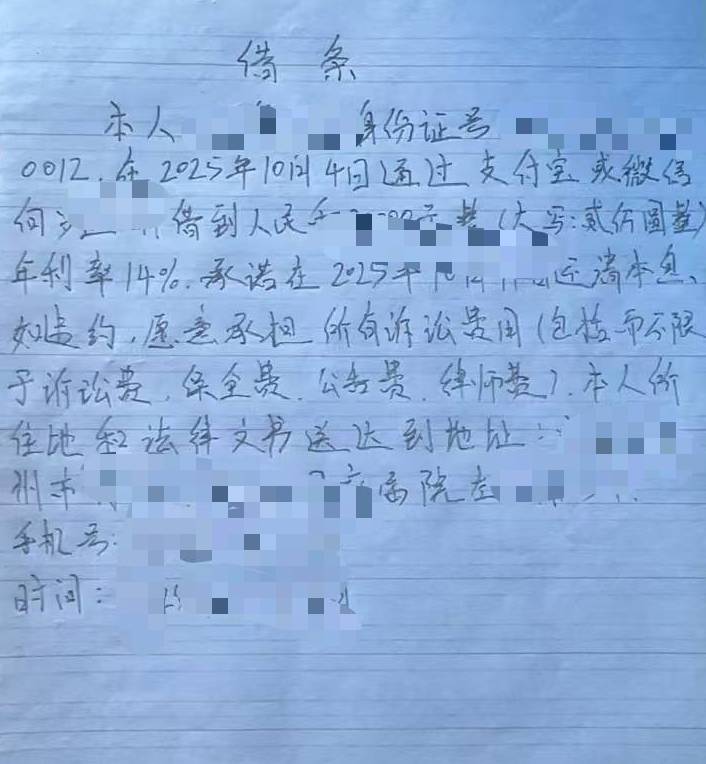 借 条
本人 身份证号
0012.在2025年10月4日通过支付宝或微信
向 借到人民 元整(大写:贰佰圆整)
年利率14%.承诺在2025年 还清本息、
如违约,愿意承担所有诉讼费用(包括而不限
于诉讼费、保全费、公告费、律师费).本人所
住地和法律文书送达到地址:
州市 病院左
手机号:
时间: